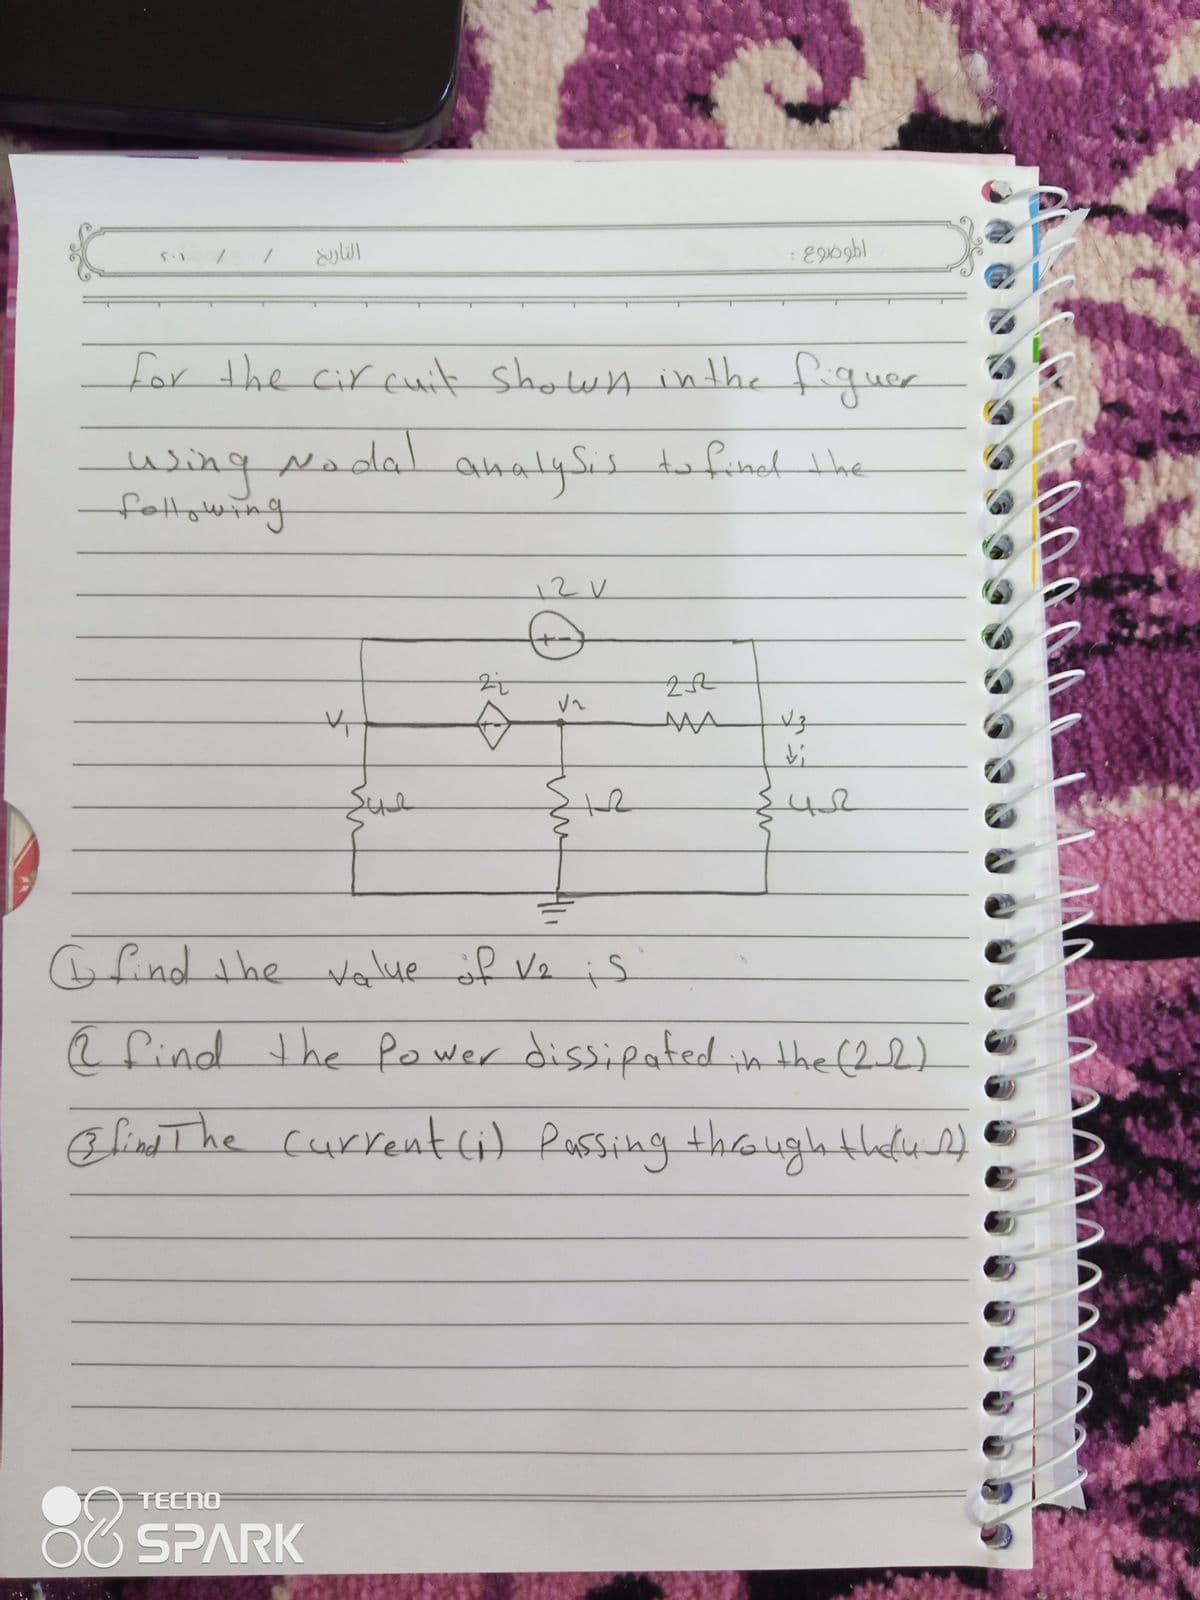 الموضوع :
التاريخ / / ٢٠١
for the circuit shown in the figuer
using Nodal analysis to find the
following
12 V
+ -
2i
V2
2Ω
V1
+ -
V3
↓i
4Ω
1Ω
4Ω
① find the value of V2 is
② find the Power dissipated in the (2Ω)
③ find The current (i) Passing through the (4Ω)
TECNO
SPARK